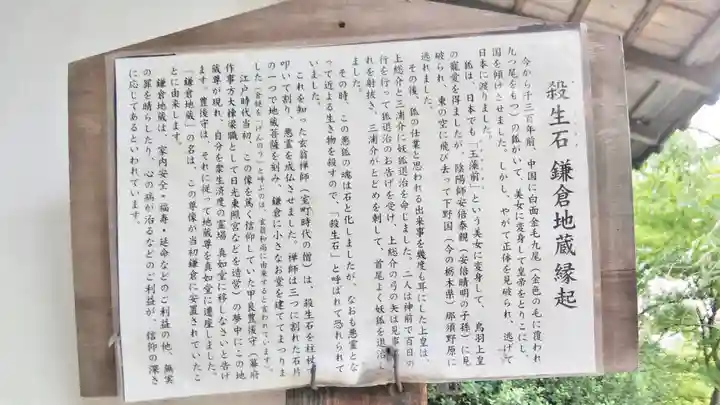 殺生石 鎌倉地蔵縁起
今から千三百年前、中国に白面金毛九尾（金色の毛に覆われ
九つ尾をもつ）の狐がいて、美女に変身して皇帝をとりこにし、
国を傾けさせました。しかし、やがて正体を見破られ、逃げて
日本に渡りました。
狐は、日本でも「玉藻前」という美女に変身して、鳥羽上皇
の寵愛を得ましたが、陰陽師安倍泰親（安倍晴明の子孫）に見
破られ、東の空に飛び去って下野国（今の栃木県）那須野原に
逃れました。
その後、狐の仕業と思われる出来事を幾度も耳にした上皇は、
上総介と三浦介に妖狐退治を命じました。二人は神前で百日の
行を行って狐退治のお告げを受け、上総介の弓の矢は見事
れを射抜き、三浦介がとどめを刺して、首尾よく妖狐を退治し
ました。
その時、この悪狐の魂は石と化しましたが、なおも悪霊とな
って近よる生き物を殺すので、「殺生石」と呼ばれて恐れられて
いました。
これを知った玄翁禅師（室町時代の僧）は、殺生石を杖で
叩いて割り、悪霊を成仏させました。禅師は三つに割れた石片
の一つで地蔵菩薩を刻み、鎌倉に小さなお堂を建ててまつりま
した（金槌を「げんのう」と呼ぶのは、玄翁和尚に由来すると言われています）。
江戸時代当初、この像を篤く信仰していた甲良豊後守（幕府
作事方大棟梁職として日光東照宮などを造営）の夢中にこの地
蔵尊が現れ、自分を衆生済度の霊場 真如堂に移しなさいと告げ
ます。豊後守は、それに従って地蔵尊を真如堂に遷座しました。
「鎌倉地蔵」の名は、この尊像が当初鎌倉に安置されていたこ
とに由来します。
鎌倉地蔵は、家内安全・福寿・延命などのご利益の他、無実
の罪を晴らしたり、心の病が治るなどのご利益が、信仰の深さ
に応じてあるといわれています。